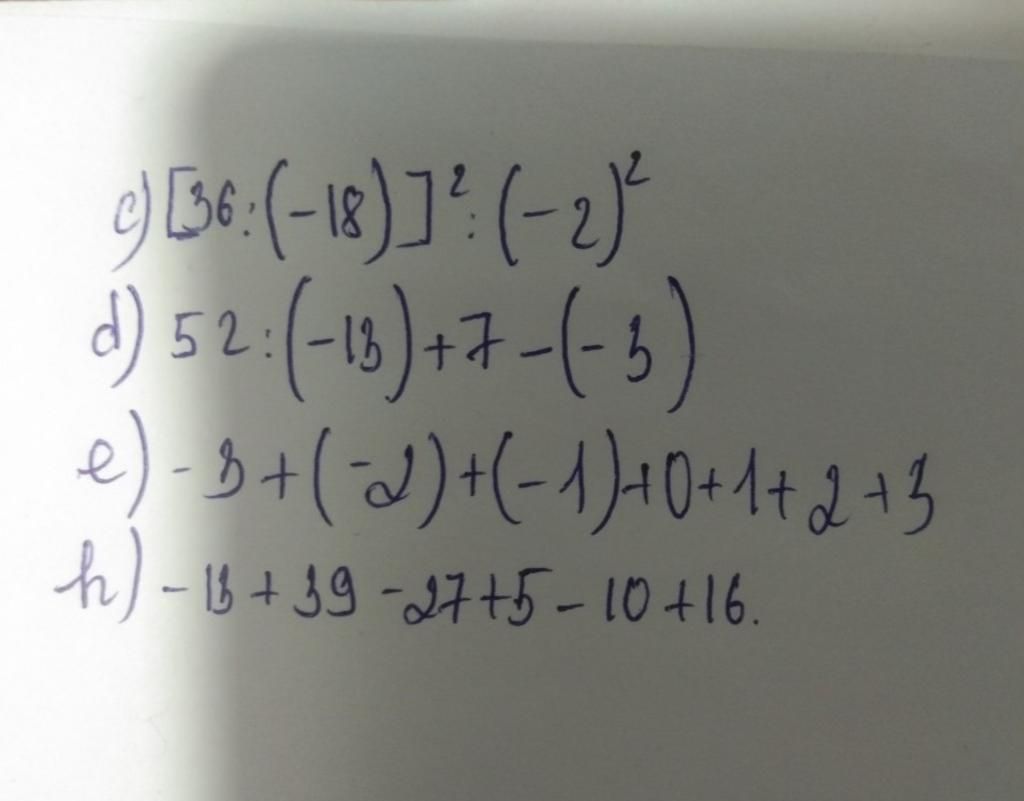 c) [36:(-18)]²:(-2)²
d) 52:(-13)+7-(-3)
e) -3+(-2)+(-1)+0+1+2+3
h) -13+39-27+5-10+16.